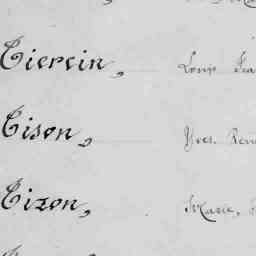 Tiercin, Louis
Tison, Yves. René
Tizon, Marie,